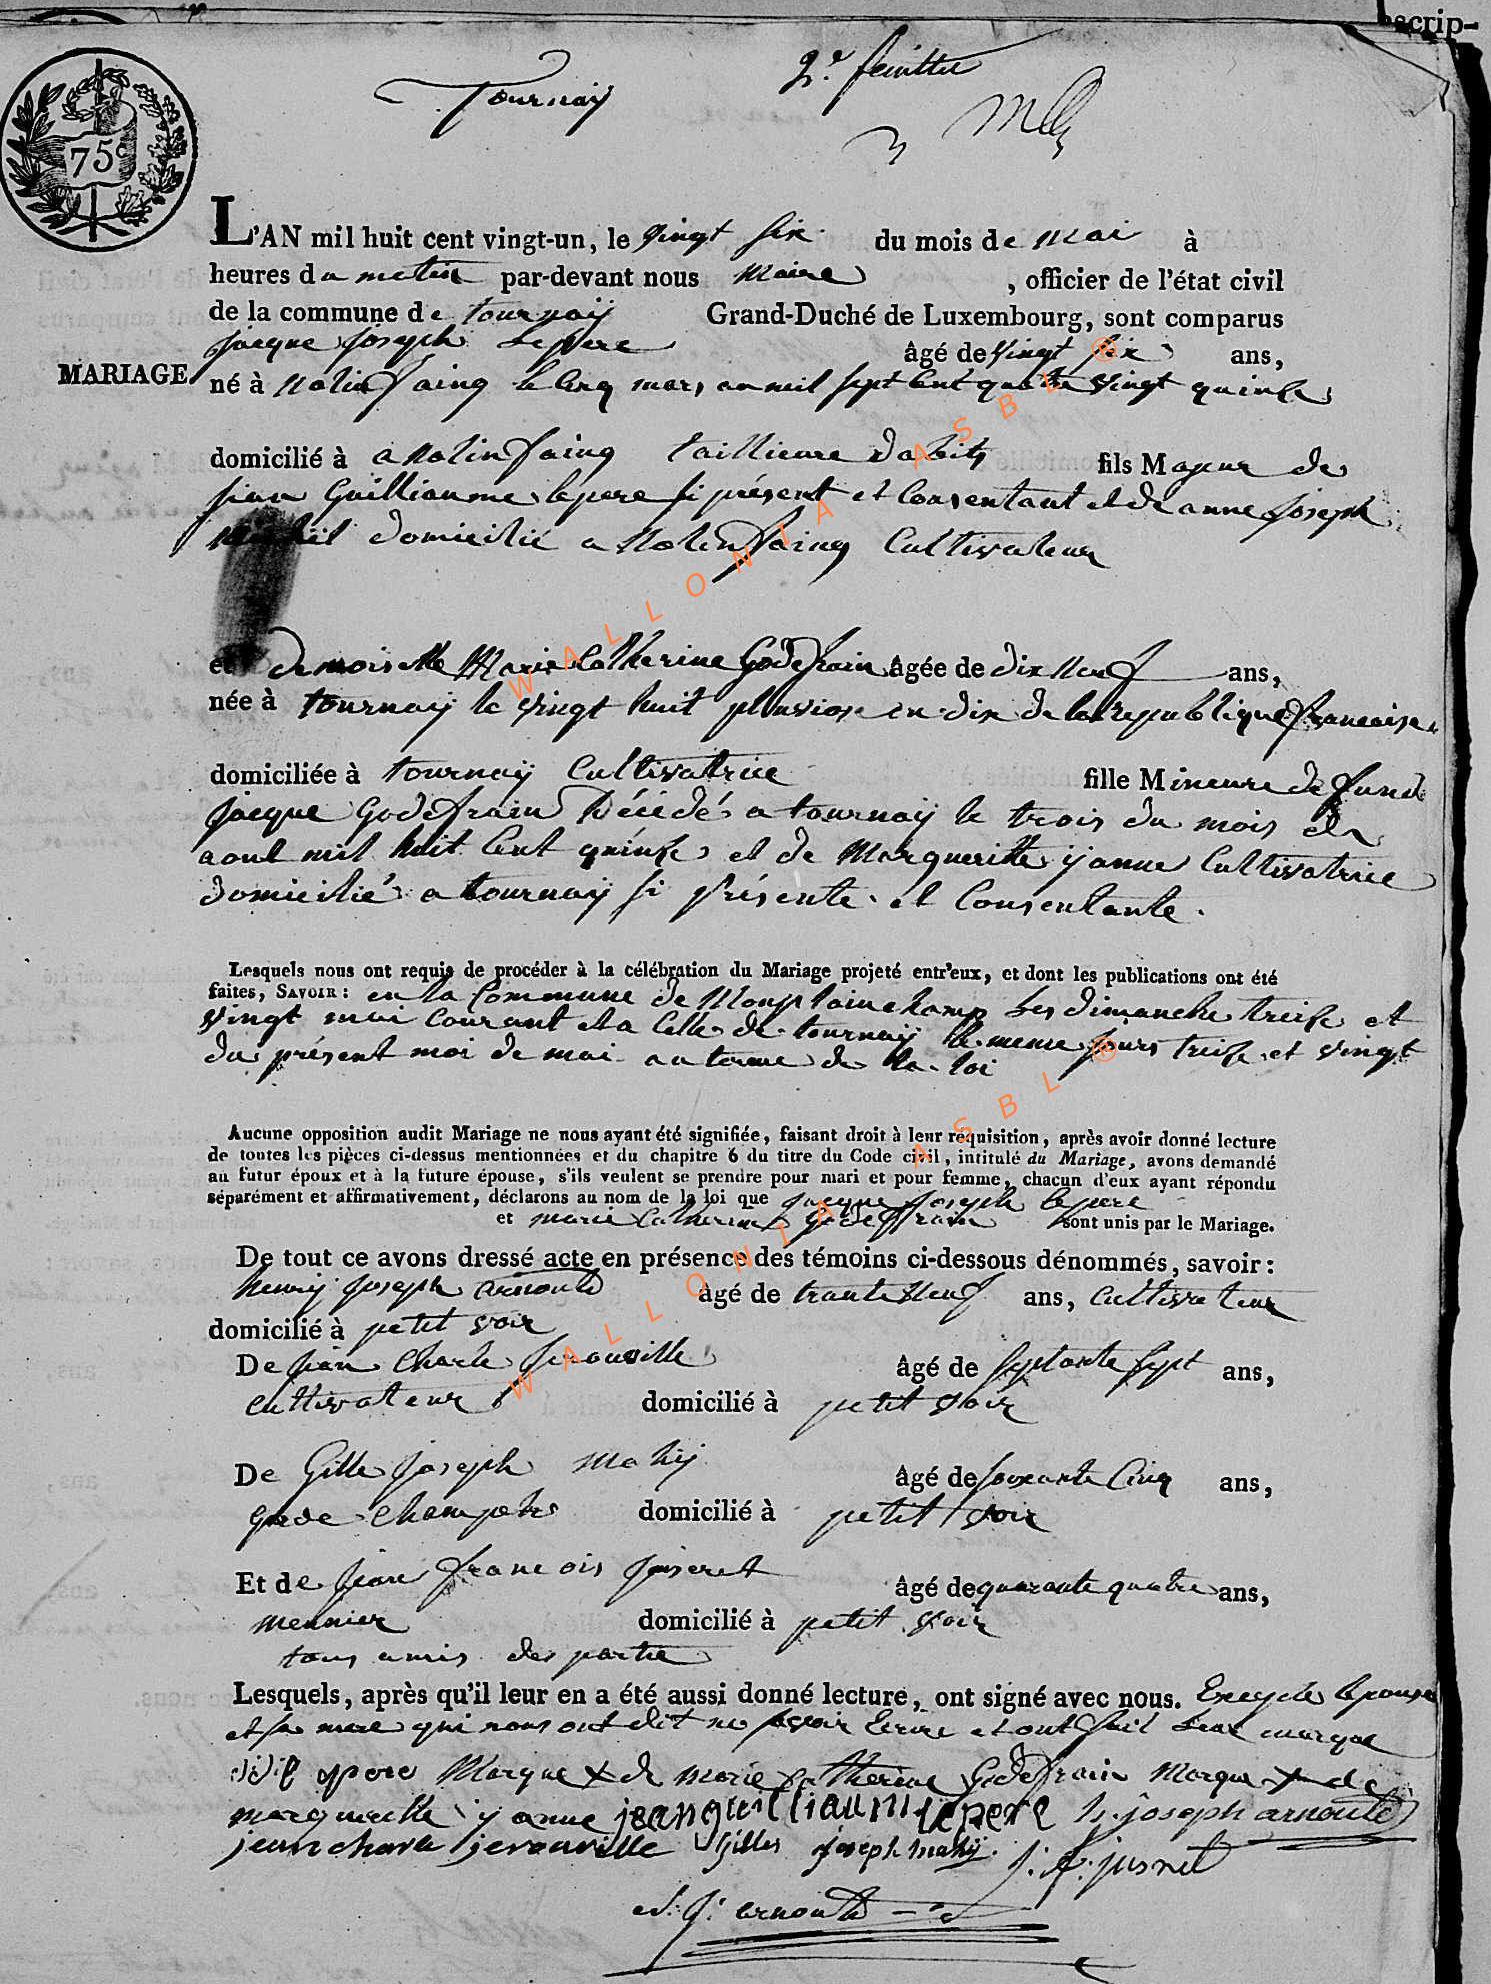 scrip-
75c
Tournay 2e feuillet
L'AN mil huit cent vingt-un, le vingt six du mois de mai à
heures du matin par-devant nous maire , officier de l'état civil
de la commune de tournay Grand-Duché de Luxembourg, sont comparus
jacque joseph Lepere âgé de vingt six ans,
MARIAGE
né à Nolinfaing le cinq mars an mil sept cent quatre vingt quinze
domicilié à a Nolinfaing taillieure dabits fils Majeur de
jean Guilliaume lepere si présent et Consentant et de anne joseph
domicilié a Nolinfaing Cultivateur
et demoiselle Marie Catherine Godefrain âgée de dix neuf ans,
née à tournay le vingt huit pluviose en dix de la republique francaise
domiciliée à tournay Cultivatrice fille Mineure de
jacque Godefrain Décédé a tournay le trois du mois de
aout mil huit Cent quinze et de Marguerite yanne Cultivatrice
domicilié a tournay si présente et Consentante.
Lesquels nous ont requis de procéder à la célébration du Mariage projeté entr'eux, et dont les publications ont été
faites, SAVOIR : en la Commune de Monplainchamp Les dimanche treize et
vingt mai courant et a Celle de tournay le meme jours treize et vingt
du présent moi de mai au terme de la loi
Aucune opposition audit Mariage ne nous ayant été signifiée, faisant droit à leur réquisition, après avoir donné lecture
de toutes les pièces ci-dessus mentionnées et du chapitre 6 du titre du Code civil, intitulé du Mariage, avons demandé
au futur époux et à la future épouse, s'ils veulent se prendre pour mari et pour femme, chacun d'eux ayant répondu
séparément et affirmativement, déclarons au nom de la loi que jacque joseph lepere
et marie Catherine godeffrain sont unis par le Mariage.
De tout ce avons dressé acte en présence des témoins ci-dessous dénommés, savoir :
henry joseph arnould âgé de trante neuf ans, Cultivateur
domicilié à petit voir
De jean Charle jerouville âgé de septante sept ans,
Cultivateur domicilié à petit voir
De Gille joseph Mahy âgé de soixante Cinq ans,
garde champetre domicilié à petit voir
Et de jean francois juseret âgé de quarante quatre ans,
meunier domicilié à petit voir
tous amis des partie
Lesquels, après qu'il leur en a été aussi donné lecture, ont signé avec nous. Excepté lepouse
et sa mere qui nous ont dit ne savoir Ecrire et ont fait leur marque
Marque X de marie catherine Godefrain Marque X de
margueritte yanne jeanguilliaume lepere h. joseph arnould
jean charle jerouville Gilles joseph mahy. j. f. jusret
arnould
WALLONIA ASBL ®
WALLONIA ASBL ®